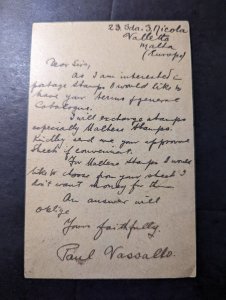 23. Sda. S. Nicola
Valletta
Malta
(Europe)
Dear Sirs,
As I am interested in
postage stamps I would like to
have your terms & general
Catalogue.
I will exchange stamps
especially Maltese Stamps.
Kindly send me your approval
sheet if convenient.
For Maltese Stamps I would
like to choose from your sheet I
don't want money for them
An answer will
oblige
Yours faithfully.
Paul Vassallo.